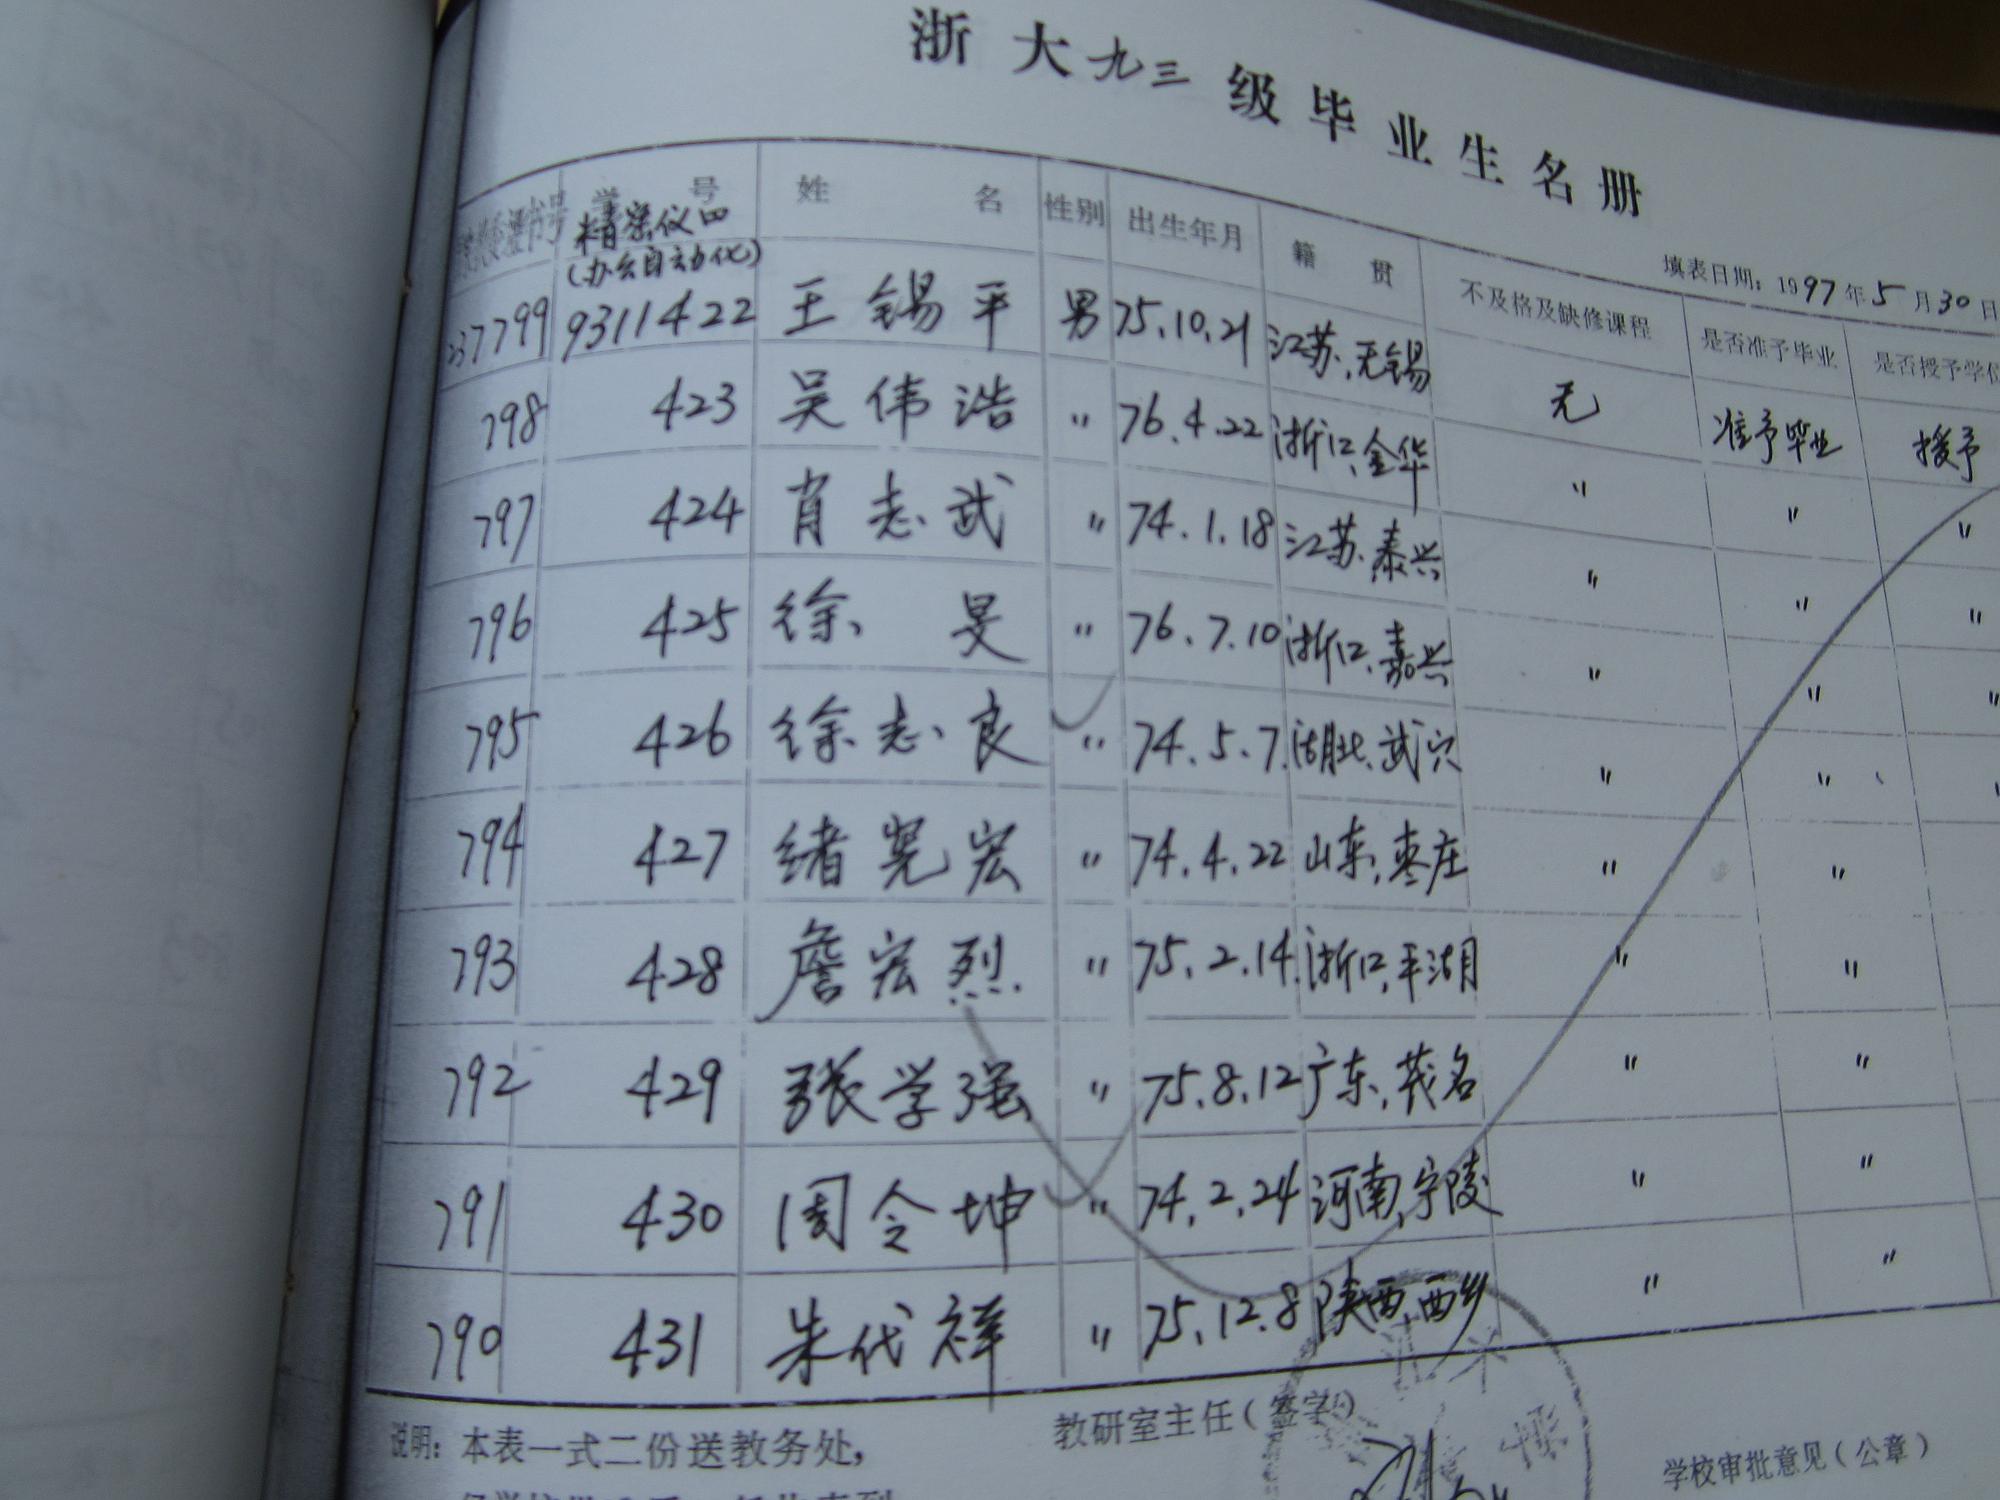 浙大九三级毕业生名册
填表日期：1997年5月30日
证书号 学号 姓名 性别 出生年月 籍贯 不及格及缺修课程 是否准予毕业 是否授予学位
精密仪四
(办公自动化)
237799 9311422 王锡平 男 75.10.21 江苏、无锡 无 准予毕业 授予
798 423 吴伟浩 〃 76.4.22 浙江、金华 〃 〃 〃
797 424 肖志武 〃 74.1.18 江苏、泰兴 〃 〃 〃
796 425 徐旻 〃 76.7.10 浙江、嘉兴 〃 〃 〃
795 426 徐志良 〃 74.5.7 湖北、武穴 〃 〃 〃
794 427 绪宪宏 〃 74.4.22 山东、枣庄 〃 〃
793 428 詹宏烈 〃 75.2.14 浙江、平湖 〃 〃
792 429 张学强 〃 75.8.12 广东、茂名 〃 〃
791 430 周令坤 〃 74.2.24 河南、宁陵 〃 〃
790 431 朱代祥 〃 75.12.8 陕西、西乡 〃 〃
说明：本表一式二份送教务处，
教研室主任(签字)
学校审批意见(公章)